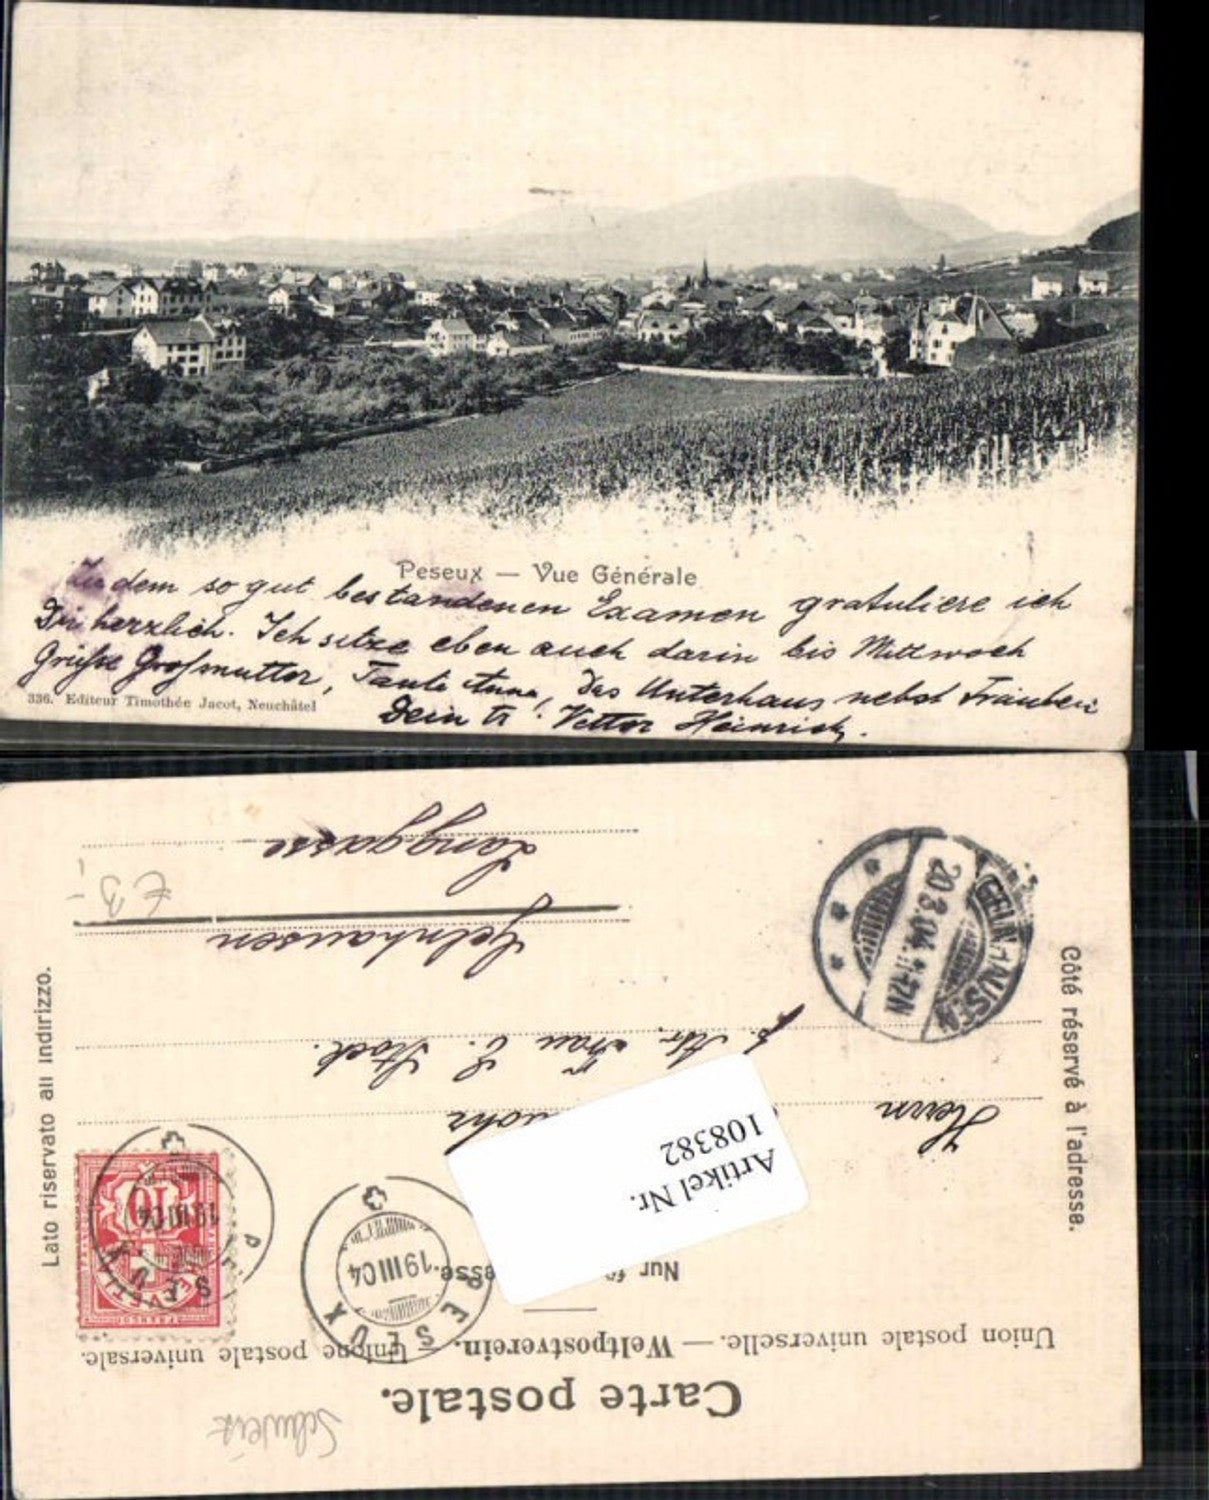 Peseux — Vue Générale
Zu dem so gut bestandenen Examen gratuliere ich
Dir herzlich. Ich sitze eben auch darin bis Mittwoch
Grüße Großmutter, Tante Anna, das Unterhaus nebst Fräulein
336. Editeur Timothée Jacot, Neuchâtel
Dein tr. Vetter Heinrich.
Carte postale.
Union postale universelle. — Weltpostverein. — Unione postale universale.
Nur
Côté réservé à l'adresse.
Lato riservato all indirizzo.
Herrn
Frau E. Stock.
Gelnhausen
Langgasse
Artikel Nr.
108382
PESEUX
19 III 04
PESEUX
19 III 04
HELVETIA
10
FRANCO
GELNHAUSEN
20.3.04.
Schweiz
€ 3,-